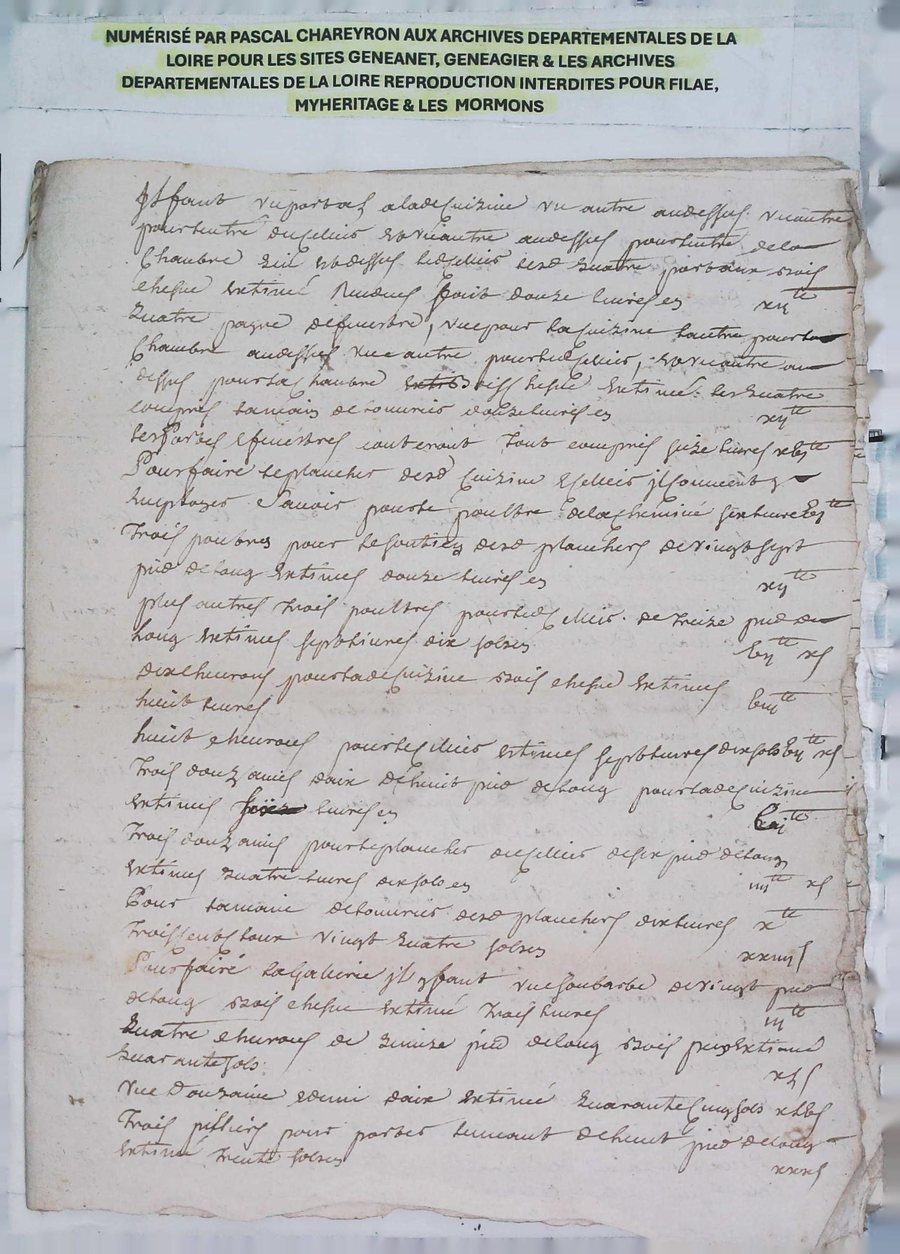 NUMÉRISÉ PAR PASCAL CHAREYRON AUX ARCHIVES DEPARTEMENTALES DE LA
LOIRE POUR LES SITES GENEANET, GENEAGIER & LES ARCHIVES
DEPARTEMENTALES DE LA LOIRE REPRODUCTION INTERDITES POUR FILAE,
MYHERITAGE & LES MORMONS
Il faut un portal a lad cuizine un autre audessus un autre
pour lentre du cellier un autre audessus pour lentre de la
chambre audessus led cellier lesd quatre portaux bois
chesne extimé rendus douze livres xij tt
quatre de fenestre, une pour la cuizine lautre pour la
chambre audessus une autre pour le cellier, une autre au
dessus pour la chambre bois chesne extimé les quatre
compris la main de louvrier douze livres xij tt
les portes & fenestres couteront tout compris seize livres xbj tt
Pour faire le plancher desd cuizine & cellier il convient y
employer savoir pour le poultre de la cheminé six livres bj tt
Trois poutres pour le soutien desd planchers de vingt sept
pied de long extimés douze livres xij tt
plus autres trois poultres pour led cellier de treize pied de
long extimés sept livres dix sols bij tt xs
dix cheurons pour lad cuizine bois chesne extimés
huict livres biij tt
huict cheurons pour le cellier extimés sept livres dix sols bij tt xs
Trois douzaines daix de huit pied de long pour lad cuizine
extimés livres
Trois douzaines pour le plancher du cellier de six pied de long
extimés quatre livres dix sols iiij tt xs
Pour la main de louvrier desd planchers dix livres x tt
Trois cents vingt quatre sols xxiiij s
Pour faire la gallerie il y faut une de vingt pied
de long bois chesne extimé trois livres iij tt
quatre cheurons de quinze pied de long bois extimé
quarante sols xl s
une douzaine & demi daix extimé quarante cinq sols xlb s
Trois pilliers pour porter de huict pied de long
extimé trente sols xxx s